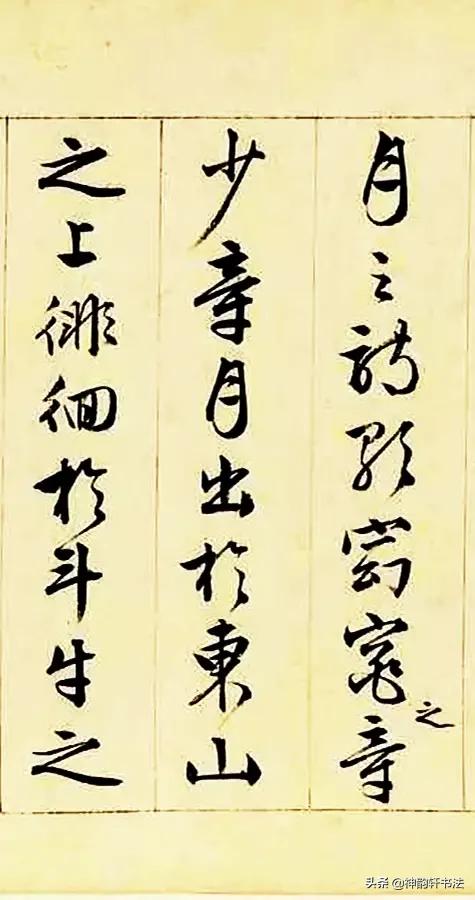 月之詩歌窈窕之章
少焉月出於東山
之上徘徊於斗牛之
头条 @神韵轩书法